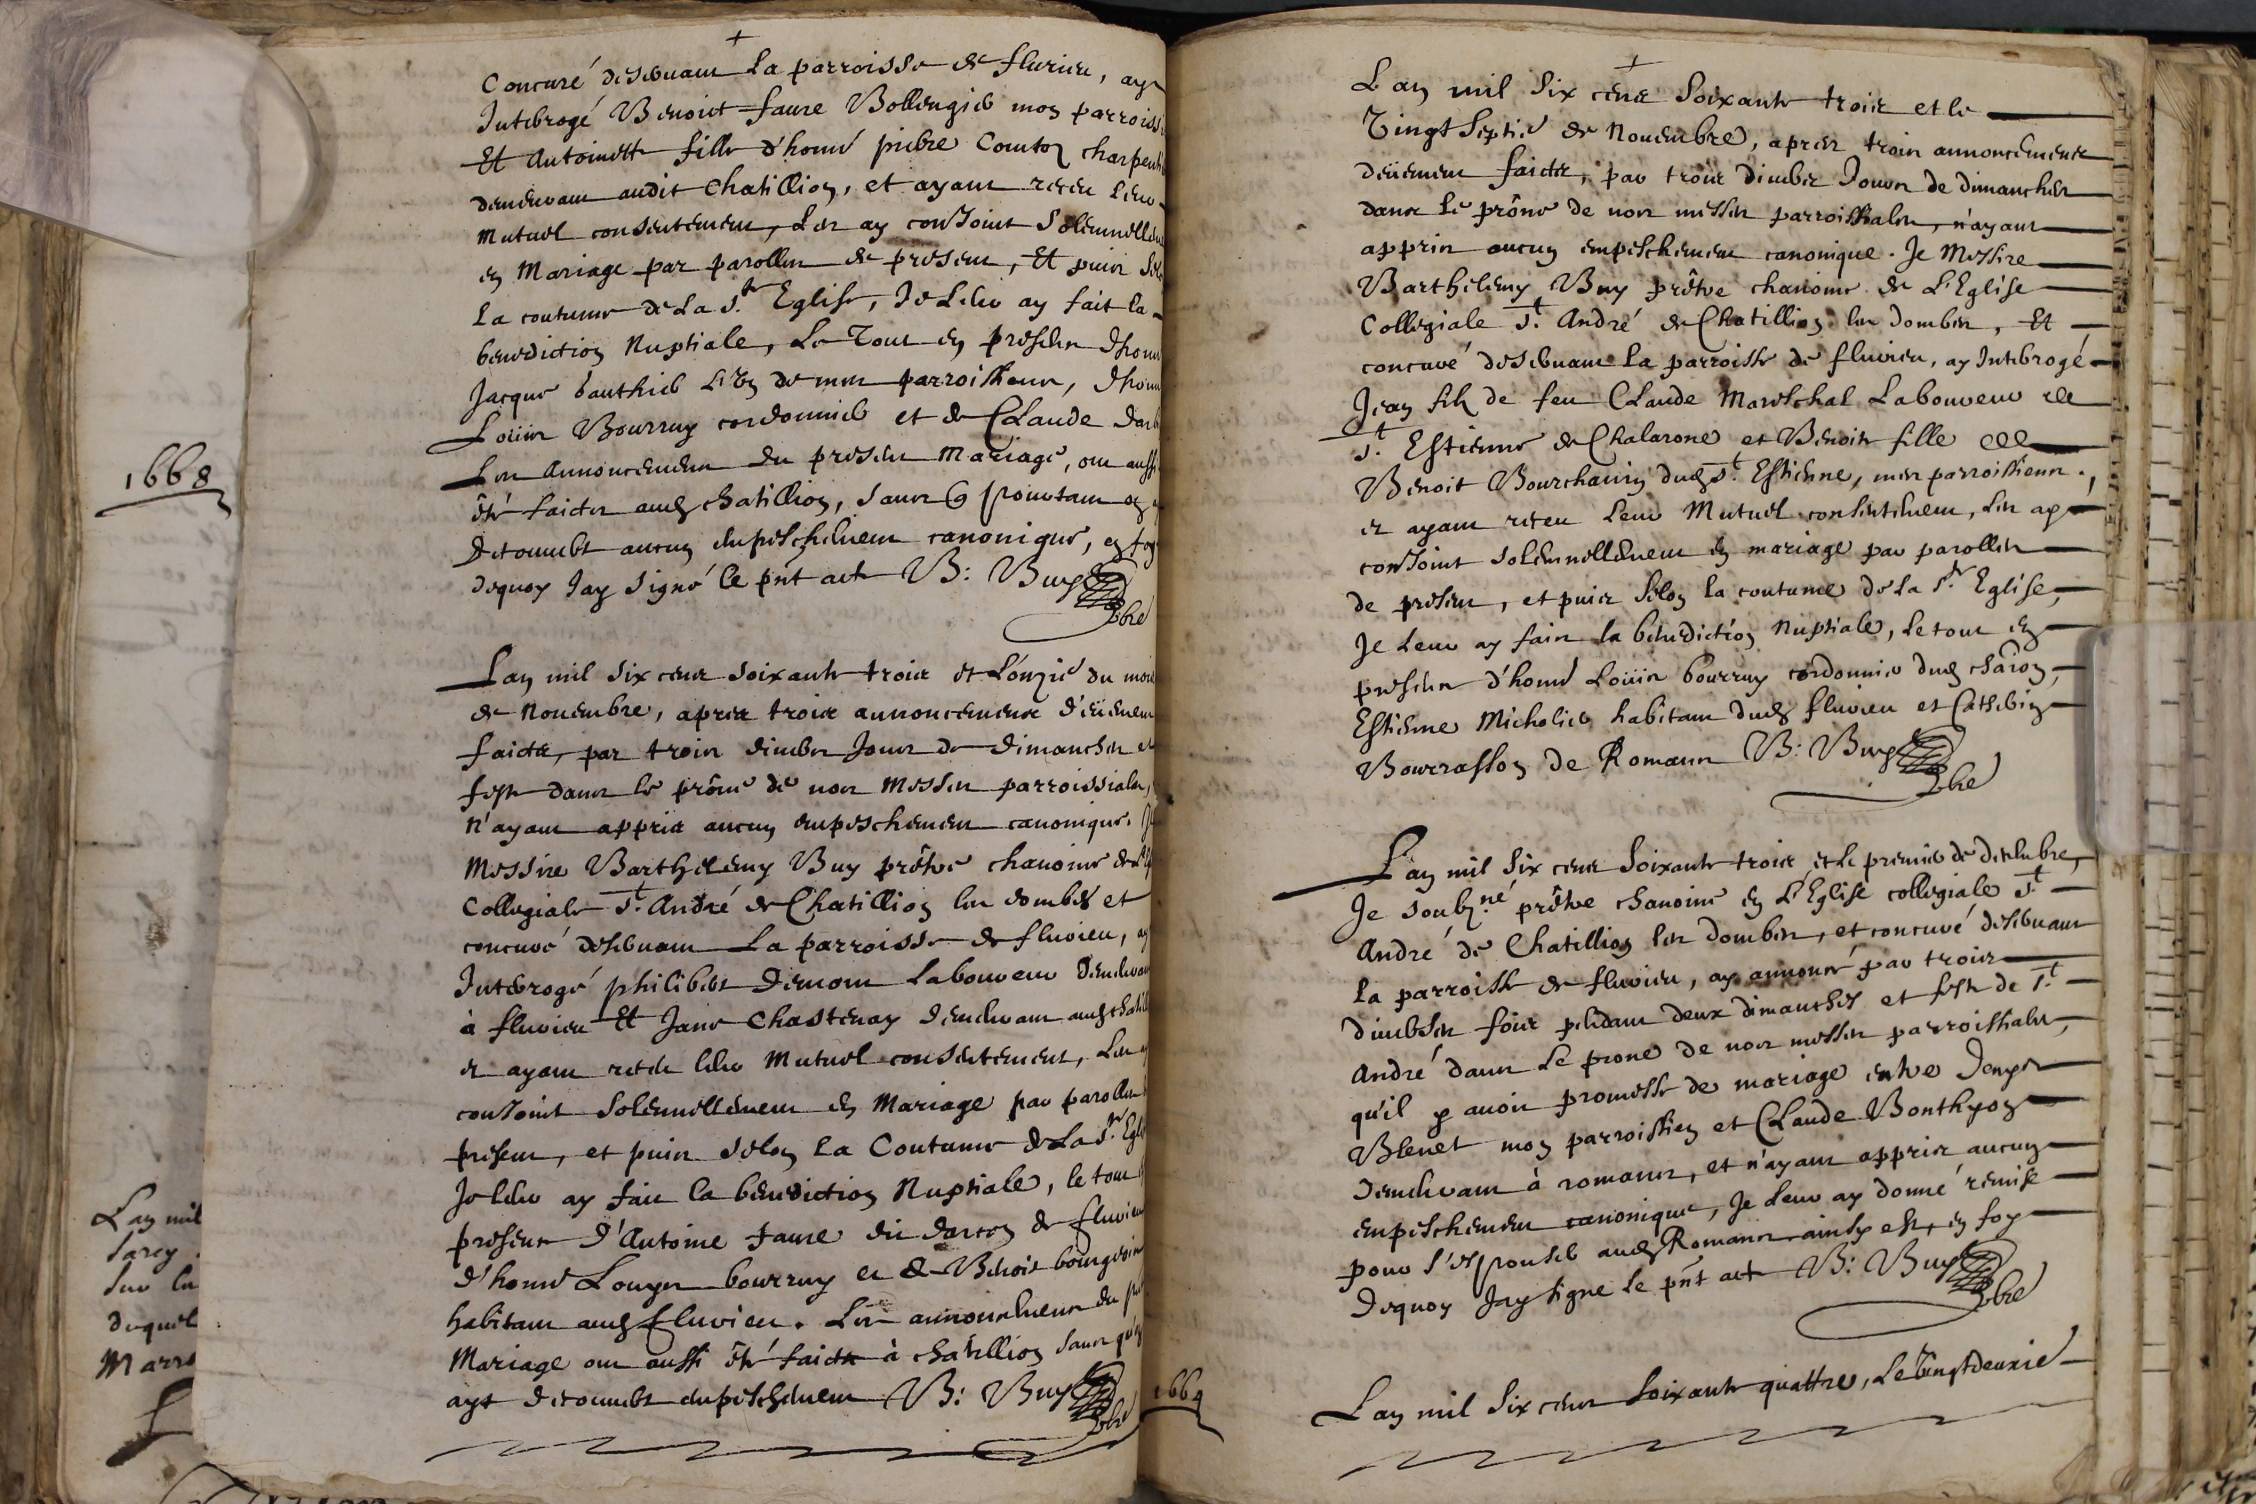 Concuré desservant La parroisse de flurieu, ay
Interrogé Benoict faure Bollengier mon parroiss
Et Antoinette fille d'honné pierre Comton charpenti
demeurant audit Chatillion, et ayant receu leur
Mutuel consentement, Les ay conjoint Solemnelleme
en Mariage par parolles de present, Et puis Sel
La coutume de La Ste Eglise, Je Leur ay fait la
benediction Nuptiale, Le Tout en presence d'honn
Jacque Gauthier L'un de mes parroissiens, d'honn
Loüis Bourruy cordonnier et de Claude
Les Annoncemens du present Mariage, ont aussi
été faictes aud chatillion, sans pourtant
decouvert aucun empeschement canonique, en foy
dequoy Jay signé le pnt acte B: Buy
pbre
1668
Lan mil six cens soixante trois et L'onzie du mois
de Novembre, apres trois annoncemens d'eüemen
faicts, par trois divers Jours de dimanches et
feste dans le prône de nos Messes parroissiales,
N'ayant appris aucun empeschement canonique. Je
Messire Barthelemy Buy prêtre chanoine de L'Eg
Collegiale St André de Chatillion les dombes et
concuré desservant La parroisse de flurieu, ay
Interrogé philibert Demont Laboureur demeurant
à flurieu Et Jane Chastenay demeurant aud chatill
et ayant receu leur Mutuel consentement, Les
conjoint Solemnellement en Mariage par parolles
present, et puis selon La Coutume de La Ste Egli
Je leur ay fait la benediction Nuptiale, le tout
presence d'Antoine faure dit darcon de flurieu
d'honné Louys bourruy et de Benoit bourgeois
habitant aud flurieu. Les annoncemens du
Mariage ont aussi été faicts à chatillion sans qu'
ayt decouvert empeschement B: Buy
pbre
Lan mil
Sur les
duquel
1664
L'an mil Six cens Soixante trois et le
Vingt Septie de Novembre, apres trois annoncemens
deüement faicts, par trois divers Jours de dimanches
dans le prône de nos messes parroissiales, n'ayant
appris aucun empeschement canonique. Je Messire
Barthelemy Buy prêtre chanoine de L'Eglise
Collegiale St André de Chatillion les dombes, Et
concuré desservant La parroisse de flurieu, ay Interrogé
Jean fils de feu Claude Mareschal Laboureur de
St Estienne de Chalarone et Benoite fille de
Benoit Bourchanin dud St Estienne, mes parroissiens,
et ayant receu leur Mutuel consentement, les ay
conjoint solemnellement en mariage par parolles
de present, et puis selon la coutume de la Ste Eglise,
Je Leur ay fait la benediction Nuptiale, le tout en
presence d'honné Loüis bourruy cordonnier dud chaon,
Estienne Micholier habitant dud flurieu et Catherin
Bourrasson de Romans B: Buy
pbre
L'an mil six cens soixante trois et le premier de decembre,
Je soubsné prêtre chanoine en L'Eglise collegiale St
André de Chatillion les dombes, et concuré desservant
la parroisse de flurieu, ay annoncé par trois
diverses fois pendant deux dimanches et feste de St
André dans le prone de nos messes parroissiales,
qu'il y avoit promesse de mariage entre Denys
Blenet mon parroissien et Claude Bonthyon
demeurant à romans, et n'ayant appris aucun
empeschement canonique, Je leur ay donné remise
pour s'espouser aud Romans ainsy est, en foy
dequoy Jay signe le pnt acte B: Buy
pbre
Lan mil Six cens Soixante quattre, Le Vingtdeuxie